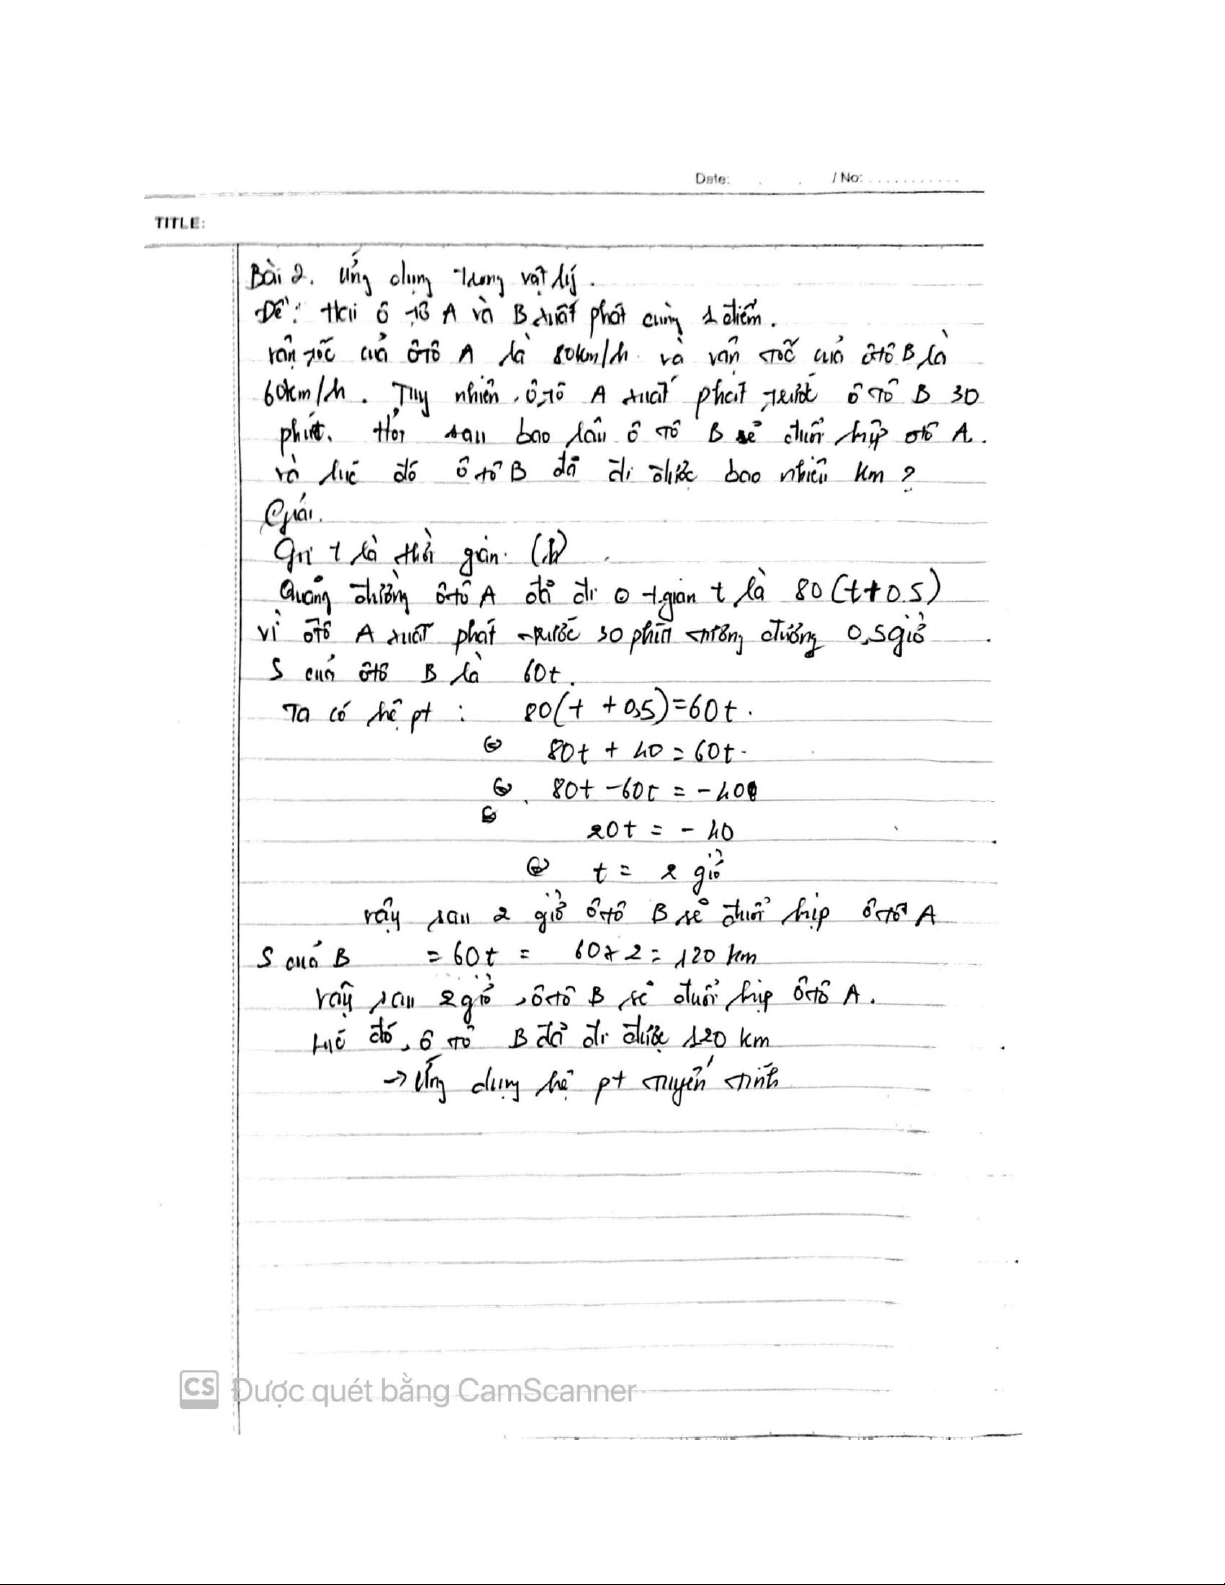 Date: . . / No: ...........
TITLE:
Bài 2. Ứng dụng trong vật lý.
Đề: Hai ô tô A và B xuất phát cùng 1 điểm.
vận tốc của ôtô A là 80km/h và vận tốc của ôtô B là
60km/h. Tuy nhiên, ô tô A xuất phát trước ô tô B 30
phút. Hỏi sau bao lâu ô tô B sẽ đuổi kịp ôtô A.
và lúc đó ô tô B đã đi được bao nhiêu km?
Giải.
Gọi t là thời gian. (h)
Quãng đường ôtô A đã đi ở tgian t là 80(t+0.5)
vì ôtô A xuất phát trước 30 phút tương đương 0,5giờ
S của ôtô B là 60t.
Ta có hệ pt : 80(t + 0,5)=60t.
⇔ 80t + 40 = 60t.
⇔ 80t - 60t = - 40
⇔ 20t = - 40
⇔ t = 2 giờ
vậy sau 2 giờ ôtô B sẽ đuổi kịp ôtô A
S của B = 60t = 60x2 = 120 km
vậy sau 2giờ, ôtô B sẽ đuổi kịp ôtô A.
Lúc đó, ô tô B đã đi được 120 km
→ Ứng dụng hệ pt tuyến tính
CS Được quét bằng CamScanner